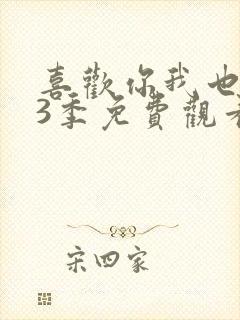 喜歡你我也
3季免費觀看
宋四家